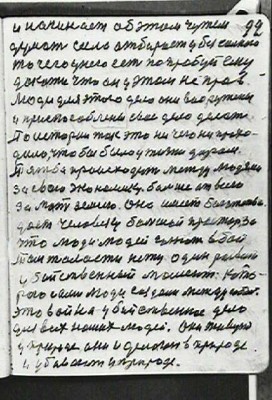 и начинает об этом чутем 99
думает сила отбирает у бессильного
то чего у него есть попробуй ему
докажи что он у этом не прав.
Люди для этого дело они вооружены
и приспособлены свое дело делать
По истории так это ничего не прохо-
дило, что бы было у жизни даром.
Борьба происходит между людями
за свою экономику, больше от всего
за мать землю. Она имеет
дает человеку большой простор за
это люди людей гонят в бой
Там жалости нету один
убийственный момент. Кото-
рого сами люди создали между собой.
Это война убийственное дело
для всех наших людей. Они живут
у природе они и делают в природе
и убивают у природе.